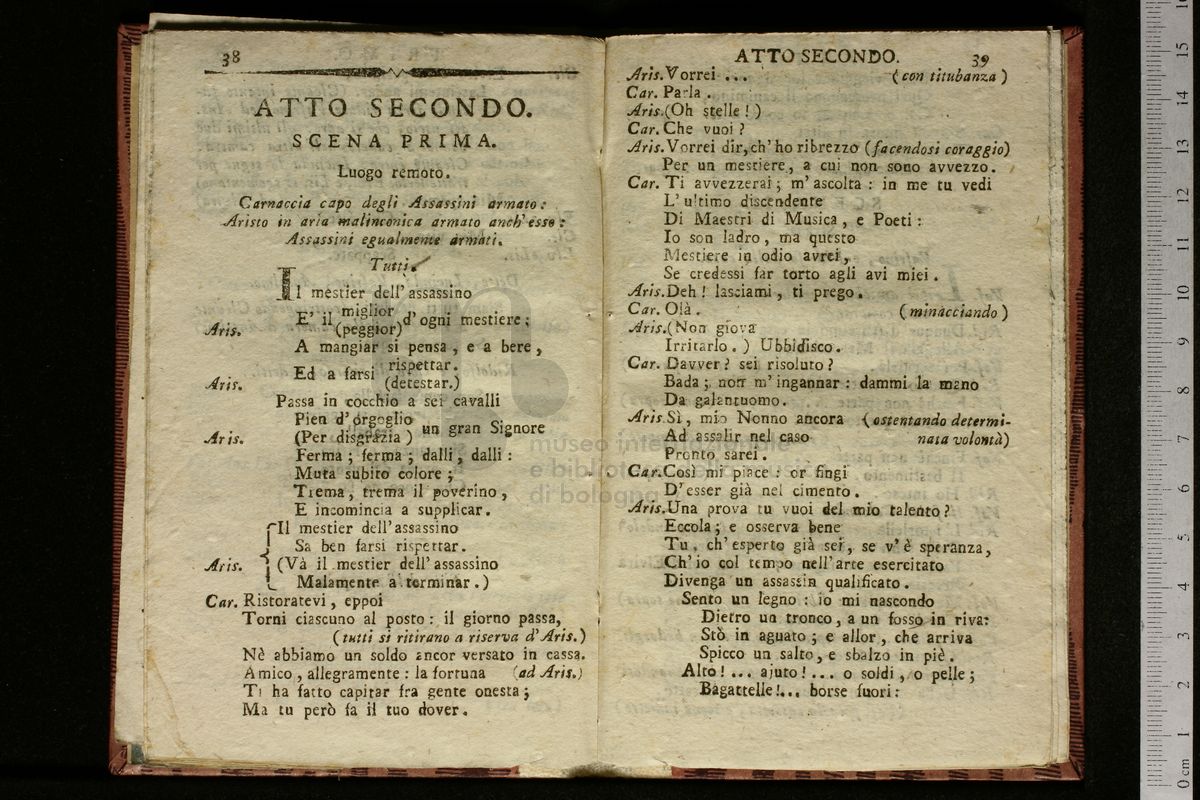 38
ATTO SECONDO.
SCENA PRIMA.
Luogo remoto.
Carnaccia capo degli Assassini armato:
Aristo in aria malinconica armato anch'esso:
Assassini egualmente armati.
Tutti.
Il mestier dell'assassino
E' il miglior d'ogni mestiere;
Aris. (peggior)
A mangiar si pensa, e a bere,
Ed a farsi rispettar.
Aris. (detestar.)
Passa in cocchio a sei cavalli
Pien d'orgoglio un gran Signore
Aris. (Per disgrazia)
Ferma; ferma; dalli, dalli:
Muta subito colore;
Trema, trema il poverino,
E incomincia a supplicar.
Il mestier dell'assassino
Sa ben farsi rispettar.
Aris. (Và il mestier dell'assassino
Malamente a terminar.)
Car. Ristoratevi, eppoi
Torni ciascuno al posto: il giorno passa,
(tutti si ritirano a riserva d'Aris.)
Nè abbiamo un soldo ancor versato in cassa.
Amico, allegramente: la fortuna (ad Aris.)
Ti ha fatto capitar fra gente onesta;
Ma tu però fa il tuo dover.
ATTO SECONDO. 39
Aris. Vorrei ... (con titubanza)
Car. Parla.
Aris. (Oh stelle!)
Car. Che vuoi?
Aris. Vorrei dir, ch'ho ribrezzo (facendosi coraggio)
Per un mestiere, a cui non sono avvezzo.
Car. Ti avvezzerai; m'ascolta: in me tu vedi
L'ultimo discendente
Di Maestri di Musica, e Poeti:
Io son ladro, ma questo
Mestiere in odio avrei,
Se credessi far torto agli avi miei.
Aris. Deh! lasciami, ti prego.
Car. Olà. (minacciando)
Aris. (Non giova
Irritarlo.) Ubbidisco.
Car. Davver? sei risoluto?
Bada; non m'ingannar: dammi la mano
Da galantuomo.
Aris. Sì, mio Nonno ancora (ostentando determi-
Ad assalir nel caso nata volontà)
Pronto sarei.
Car. Così mi piace: or fingi
D'esser già nel cimento.
Aris. Una prova tu vuoi del mio talento?
Eccola; e osserva bene
Tu, ch'esperto già sei, se v'è speranza,
Ch'io col tempo nell'arte esercitato
Divenga un assassin qualificato.
Sento un legno: io mi nascondo
Dietro un tronco, a un fosso in riva:
Stò in aguato; e allor, che arriva
Spicco un salto, e sbalzo in piè.
Alto!... ajuto!... o soldi, o pelle;
Bagattelle!... borse fuori:
museo internazionale
e biblioteca
di bologna
0 cm 1 2 3 4 5 6 7 8 9 10 11 12 13 14 15